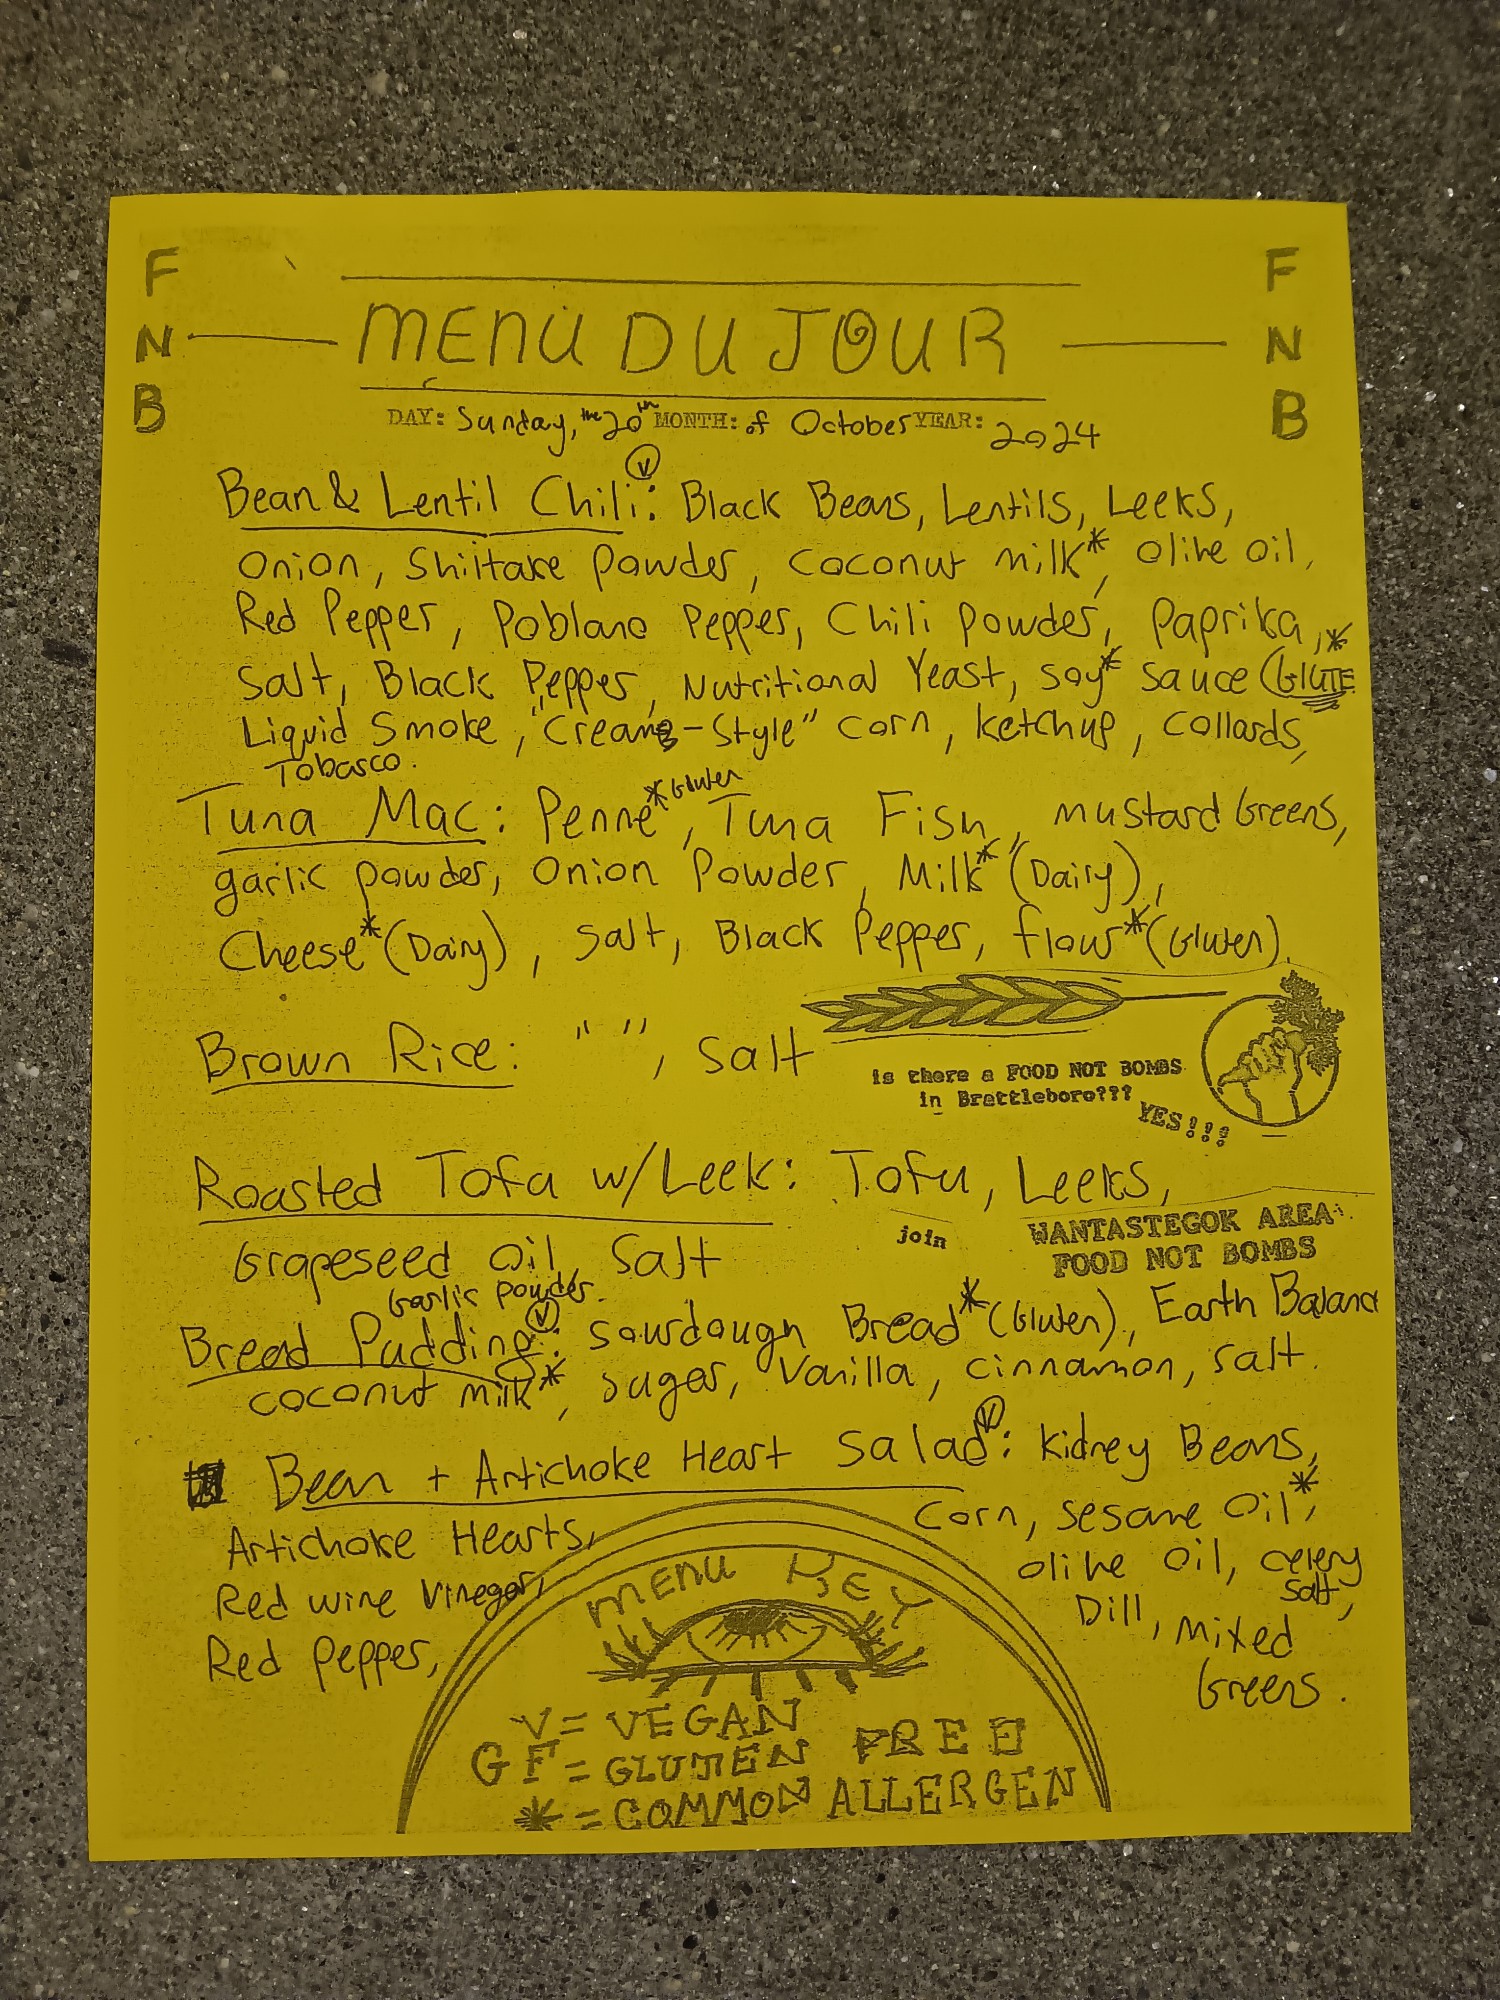 F
N
B
F
N
B
MENU DU JOUR
DAY: Sunday, the 20th MONTH: of October YEAR: 2024
Bean & Lentil Chili Ⓥ: Black Beans, Lentils, Leeks,
Onion, Shiitake Powder, Coconut Milk*, Olive Oil,
Red Pepper, Poblano Pepper, Chili Powder, Paprika,
Salt, Black Pepper, Nutritional Yeast, Soy* Sauce (*GLUTE
Liquid Smoke, "Cream-Style" Corn, Ketchup, Collards,
Tobasco.
Tuna Mac: Penne* Gluten, Tuna Fish, Mustard Greens,
garlic powder, Onion Powder, Milk* (Dairy),
Cheese* (Dairy), Salt, Black Pepper, flour* (Gluten).
Brown Rice: " ", Salt
is there a FOOD NOT BOMBS
in Brattleboro???
YES!!!
Roasted Tofu w/Leek: Tofu, Leeks,
Grapeseed Oil, Salt
Garlic powder.
join
WANTASTEGOK AREA
FOOD NOT BOMBS
Bread Pudding Ⓥ: Sourdough Bread* (Gluten), Earth Balanc
coconut milk*, sugar, Vanilla, cinnamon, salt.
Bean + Artichoke Heart Salad Ⓥ: Kidney Beans,
Artichoke Hearts,
Red wine Vinegar,
Red Pepper,
Corn, Sesame Oil*,
Olive Oil, celery
salt,
Dill, Mixed
Greens.
MENU KEY
V = VEGAN
GF = GLUTEN FREE
* = COMMON ALLERGEN